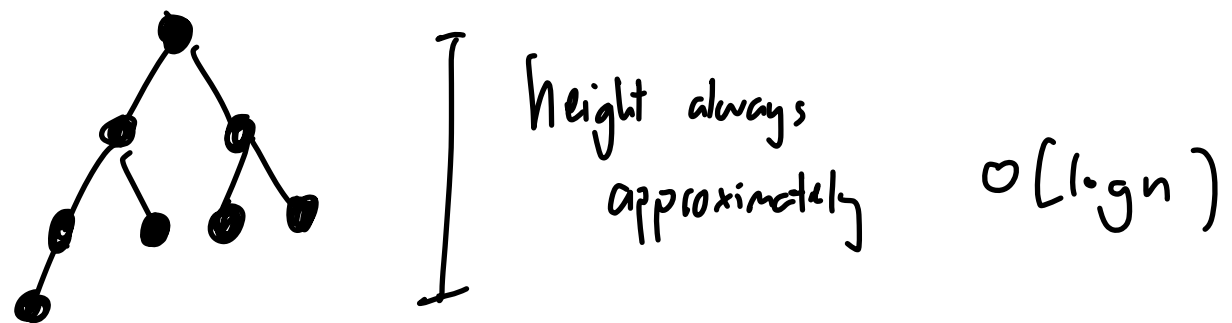 height always
approximately O(logn)